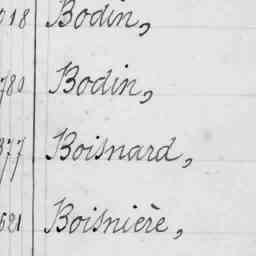 018 Bodin,
780 Bodin,
377 Boisnard,
621 Boisnière,